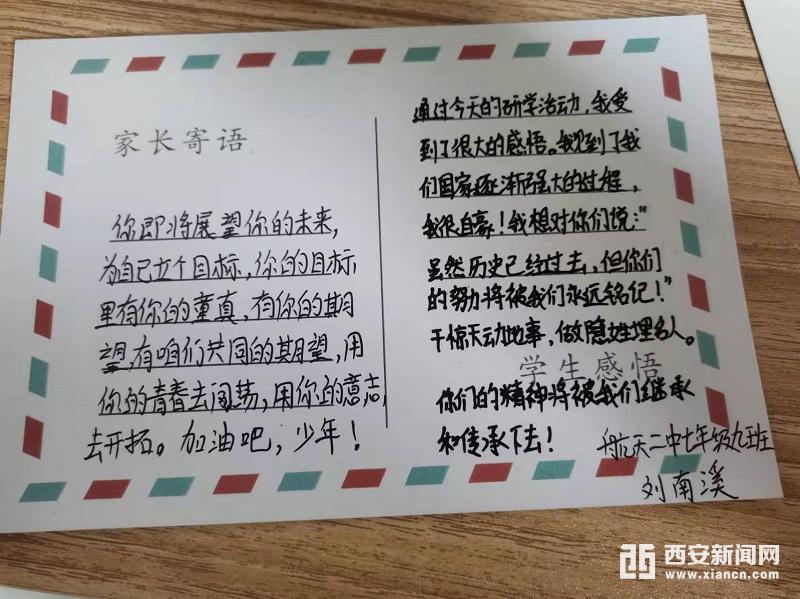 家长寄语
你即将展望你的未来,
为自己立个目标,你的目标
里有你的童真,有你的期
望,有咱们共同的期望,用
你的青春去闯荡,用你的意志,
去开拓。加油吧,少年!
通过今天的研学活动,我受
到了很大的感悟。我见到了我
们国家逐渐强大的过程,
我很自豪!我想对你们说:"
虽然历史已经过去,但你们
的努力将被我们永远铭记!"
干惊天动地事,做隐姓埋名人。
学生感悟
你们的精神将被我们继承
和传承下去!
航天二中七年级九班
刘南溪
西安新闻网
www.xiancn.com